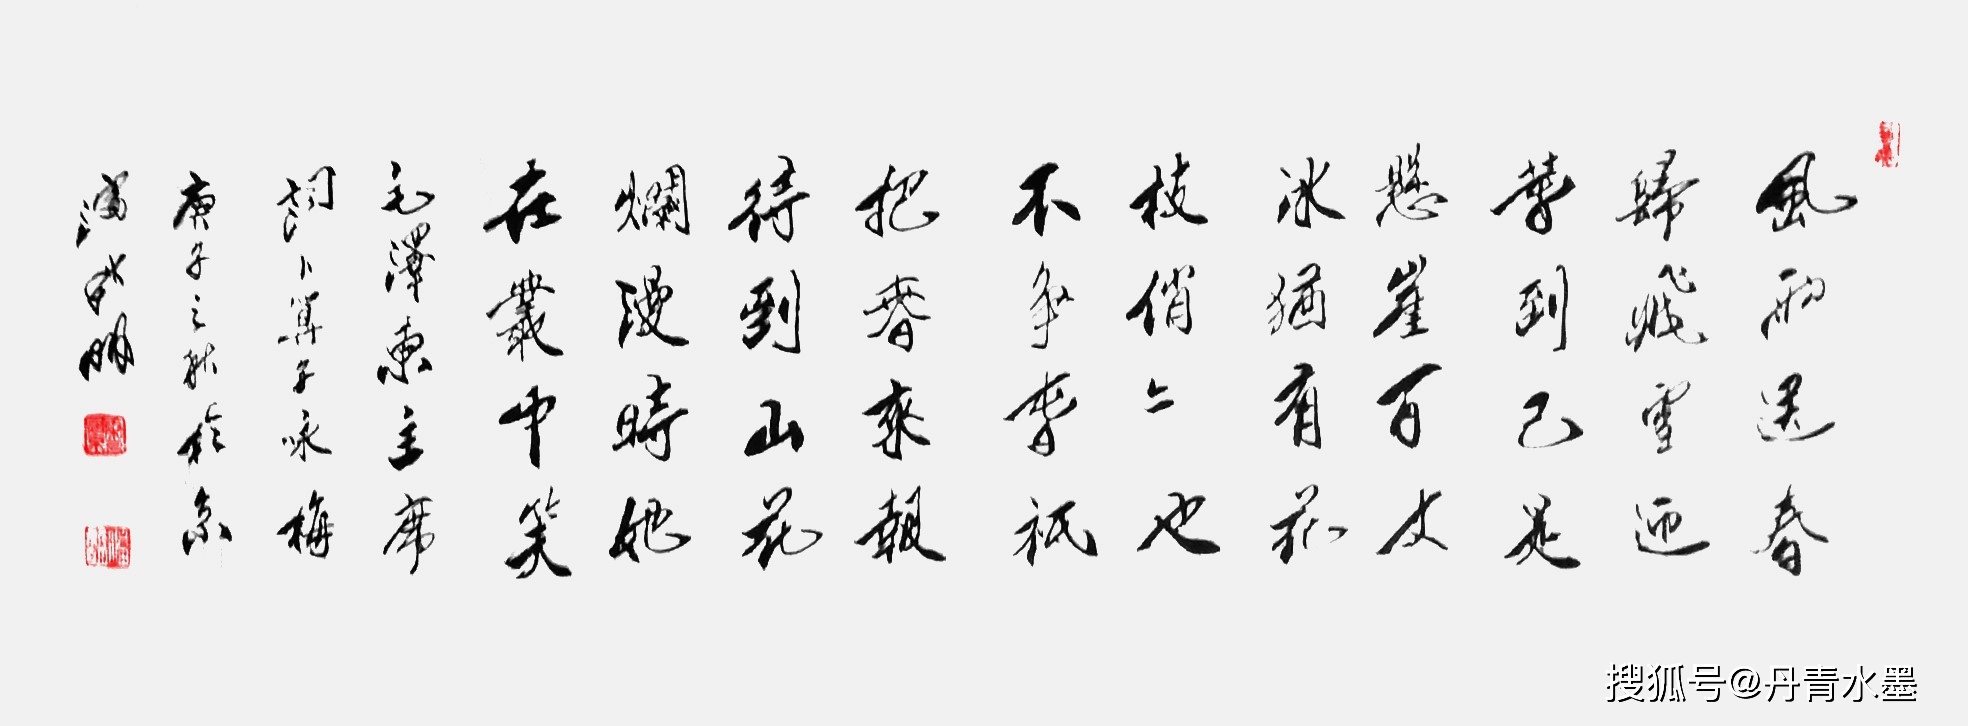 風雨送春
歸飛雪迎
春到已是
懸崖百丈
冰猶有花
枝俏〻也
不爭春祇
把春來報
待到山花
爛漫時她
在叢中笑
毛澤東主席
詞卜算子咏梅
庚子之秋於京
搜狐号@丹青水墨